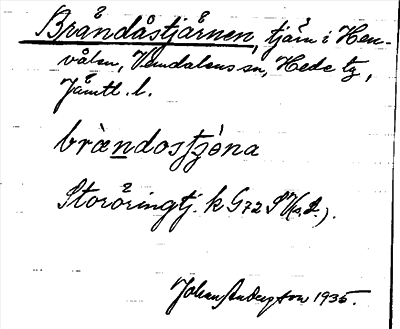 Brändåstjärnen, tjärn i Hen-
vålen, Vemdalens sn, Hede tg,
Jämtl. l.
brä̀ndostjèna
Storöringtj. k G72 SV
Johan Anderson 1935.